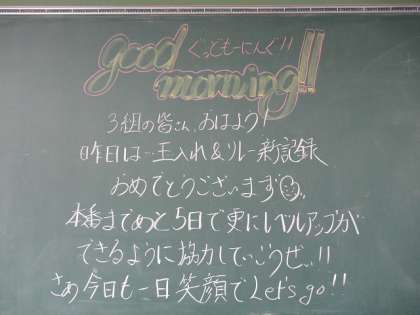 good ぐっどもーにんぐ!!
morning!!
3組の皆さん、おはよう!
昨日は…玉入れ&リレー新記録
おめでとうございます
本番まであと5日で更にレベルアップが
できるように協力していこうぜ!!
さあ今日も一日笑顔でLet's go!!